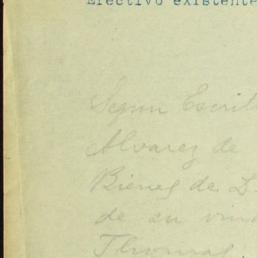 Efectivo existente
Segun Escrit
Alvarez de
Bienes de D.
de su viu
Thomas